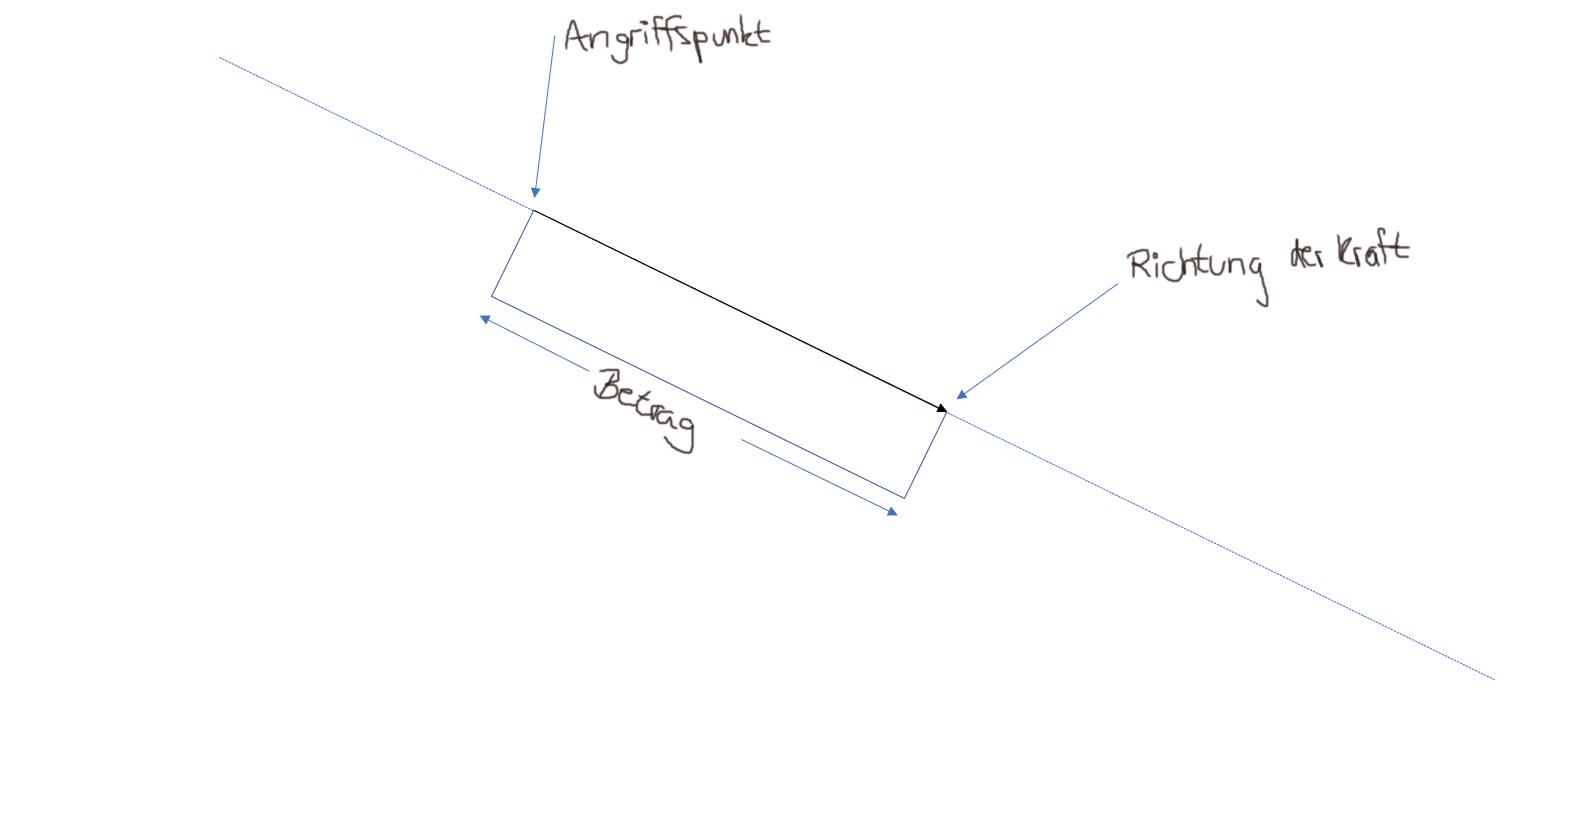 Angriffspunkt
Richtung der Kraft
Betrag